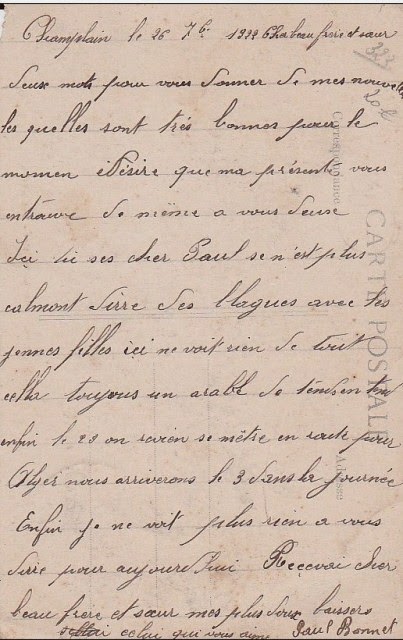 Champlain le 26 7bre 1922 Cher beau frère et sœur
deux mots pour vous donner de mes nouvelles
les quelles sont très bonnes pour le
momen et Désire que ma présente vous
entrouve de même a vous deux
Içi ses cher Paul se n'est plus
calmont dirre des blagues avec les
jennes filles içi ne voit rien de tout
cella toujous un arabe de tend en tend
enfin le 28 on se mètre en route pour
Alger nous arriverons le 3 dans la journée
Enfin je ne voit plus rien a vous
dirre pour aujourd'hui Recevai cher
beau frere et sœur mes plus doux baisers
celui qui vous aime Paul Bonnet
323
CARTE POSTALE
Correspondance
Adresse